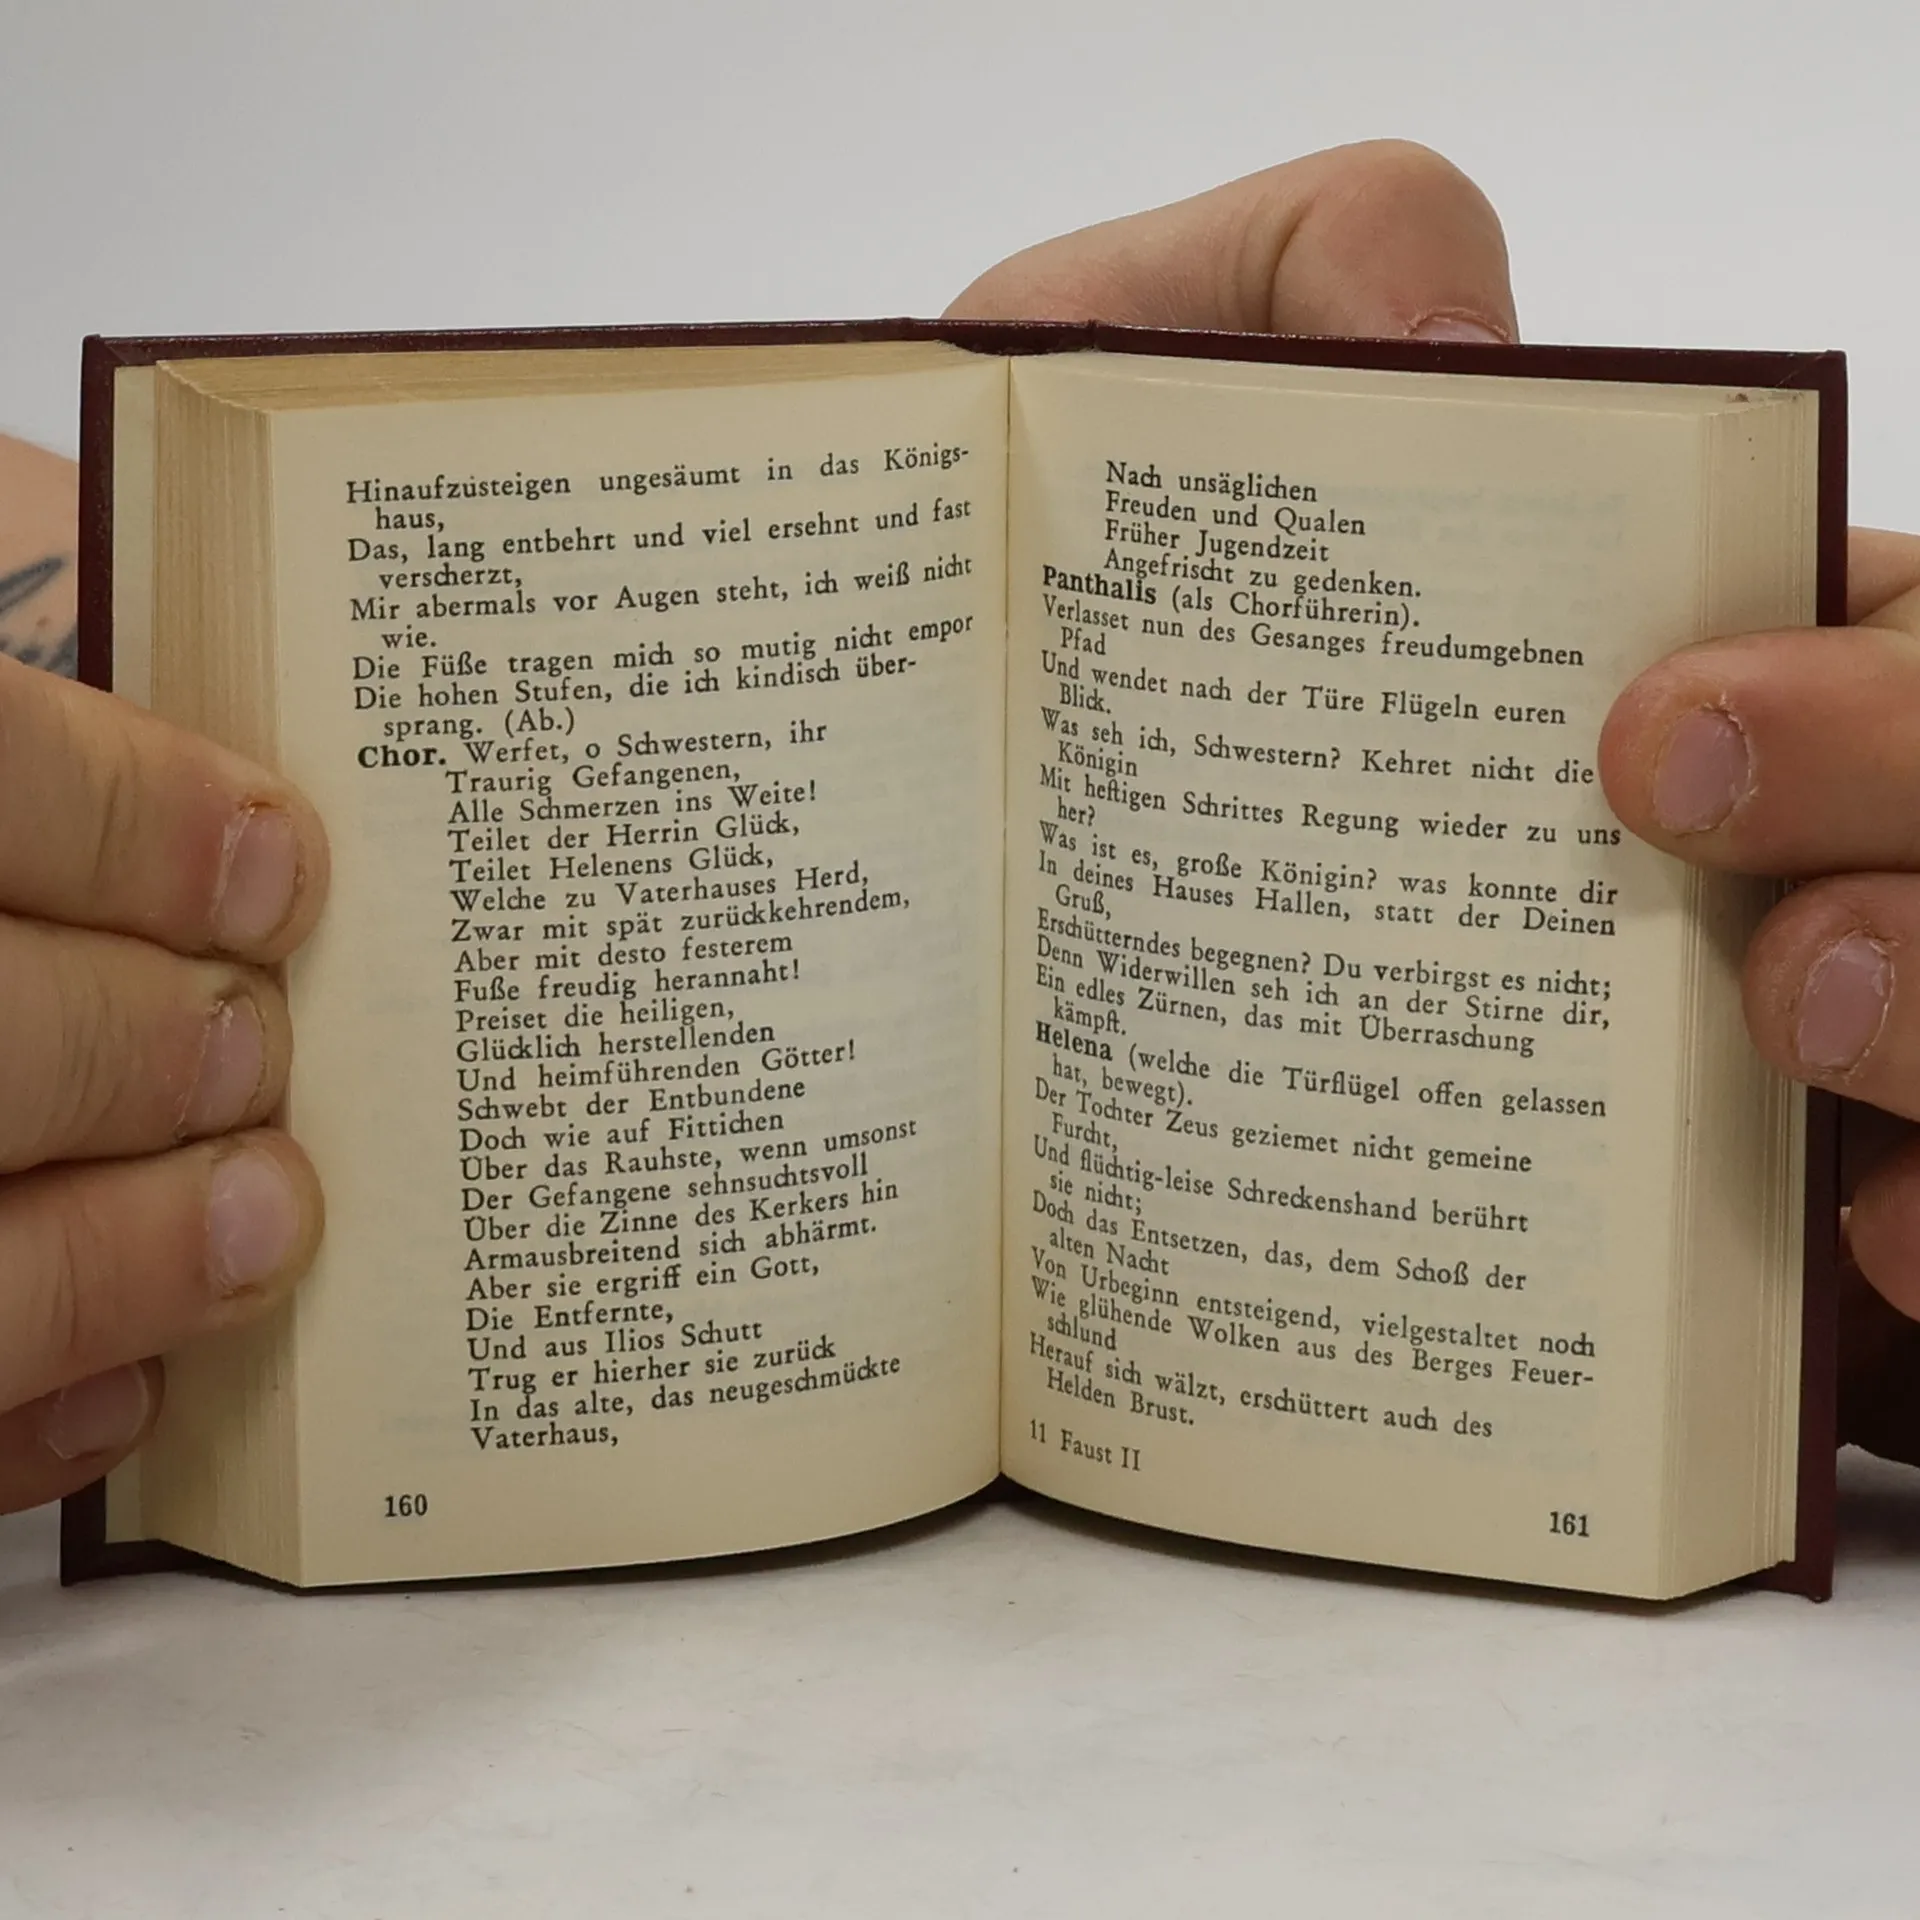 Hinaufzusteigen ungesäumt in das Königs-
haus,
Das, lang entbehrt und viel ersehnt und fast
verscherzt,
Mir abermals vor Augen steht, ich weiß nicht
wie.
Die Füße tragen mich so mutig nicht empor
Die hohen Stufen, die ich kindisch über-
sprang. (Ab.)
Chor. Werfet, o Schwestern, ihr
Traurig Gefangenen,
Alle Schmerzen ins Weite!
Teilet der Herrin Glück,
Teilet Helenens Glück,
Welche zu Vaterhauses Herd,
Zwar mit spät zurückkehrendem,
Aber mit desto festerem
Fuße freudig herannaht!
Preiset die heiligen,
Glücklich herstellenden
Und heimführenden Götter!
Schwebt der Entbundene
Doch wie auf Fittichen
Über das Rauhste, wenn umsonst
Der Gefangene sehnsuchtsvoll
Über die Zinne des Kerkers hin
Armausbreitend sich abhärmt.
Aber sie ergriff ein Gott,
Die Entfernte,
Und aus Ilios Schutt
Trug er hierher sie zurück
In das alte, das neugeschmückte
Vaterhaus,
160
Nach unsäglichen
Freuden und Qualen
Früher Jugendzeit
Angefrischt zu gedenken.
Panthalis (als Chorführerin).
Verlasset nun des Gesanges freudumgebnen
Pfad
Und wendet nach der Türe Flügeln euren
Blick.
Was seh ich, Schwestern? Kehret nicht die
Königin
Mit heftigen Schrittes Regung wieder zu uns
her?
Was ist es, große Königin? was konnte dir
In deines Hauses Hallen, statt der Deinen
Gruß,
Erschütterndes begegnen? Du verbirgst es nicht;
Denn Widerwillen seh ich an der Stirne dir,
Ein edles Zürnen, das mit Überraschung
kämpft.
Helena (welche die Türflügel offen gelassen
hat, bewegt).
Der Tochter Zeus geziemet nicht gemeine
Furcht,
Und flüchtig-leise Schreckenshand berührt
sie nicht;
Doch das Entsetzen, das, dem Schoß der
alten Nacht
Von Urbeginn entsteigend, vielgestaltet noch
Wie glühende Wolken aus des Berges Feuer-
schlund
Herauf sich wälzt, erschüttert auch des
Helden Brust.
11 Faust II
161